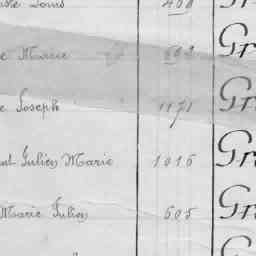 Louis 408 Gr
e Marie 693 Gr
e Joseph 1171 Gr
ent Julien Marie 1016 Gr
Marie Julien 605 Gr